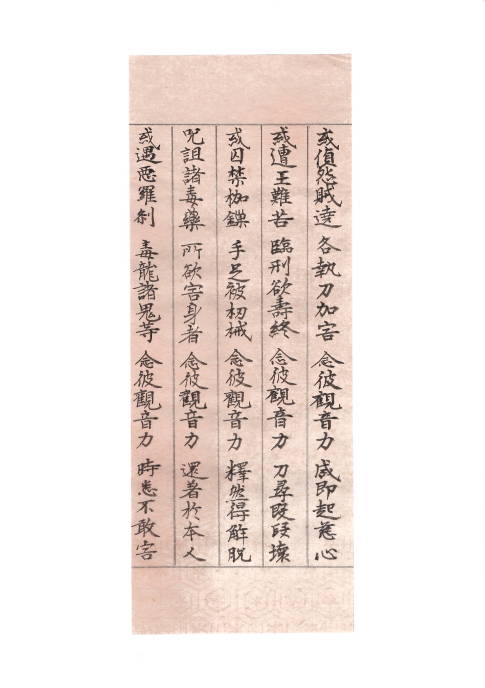 或値怨賊遶 各執刀加害 念彼觀音力 咸即起慈心
或遭王難苦 臨刑欲壽終 念彼觀音力 刀尋段段壞
或囚禁枷鏁 手足被杻械 念彼觀音力 釋然得解脱
呪詛諸毒藥 所欲害身者 念彼觀音力 還著於本人
或遇悪羅刹 毒龍諸鬼等 念彼觀音力 時悉不敢害